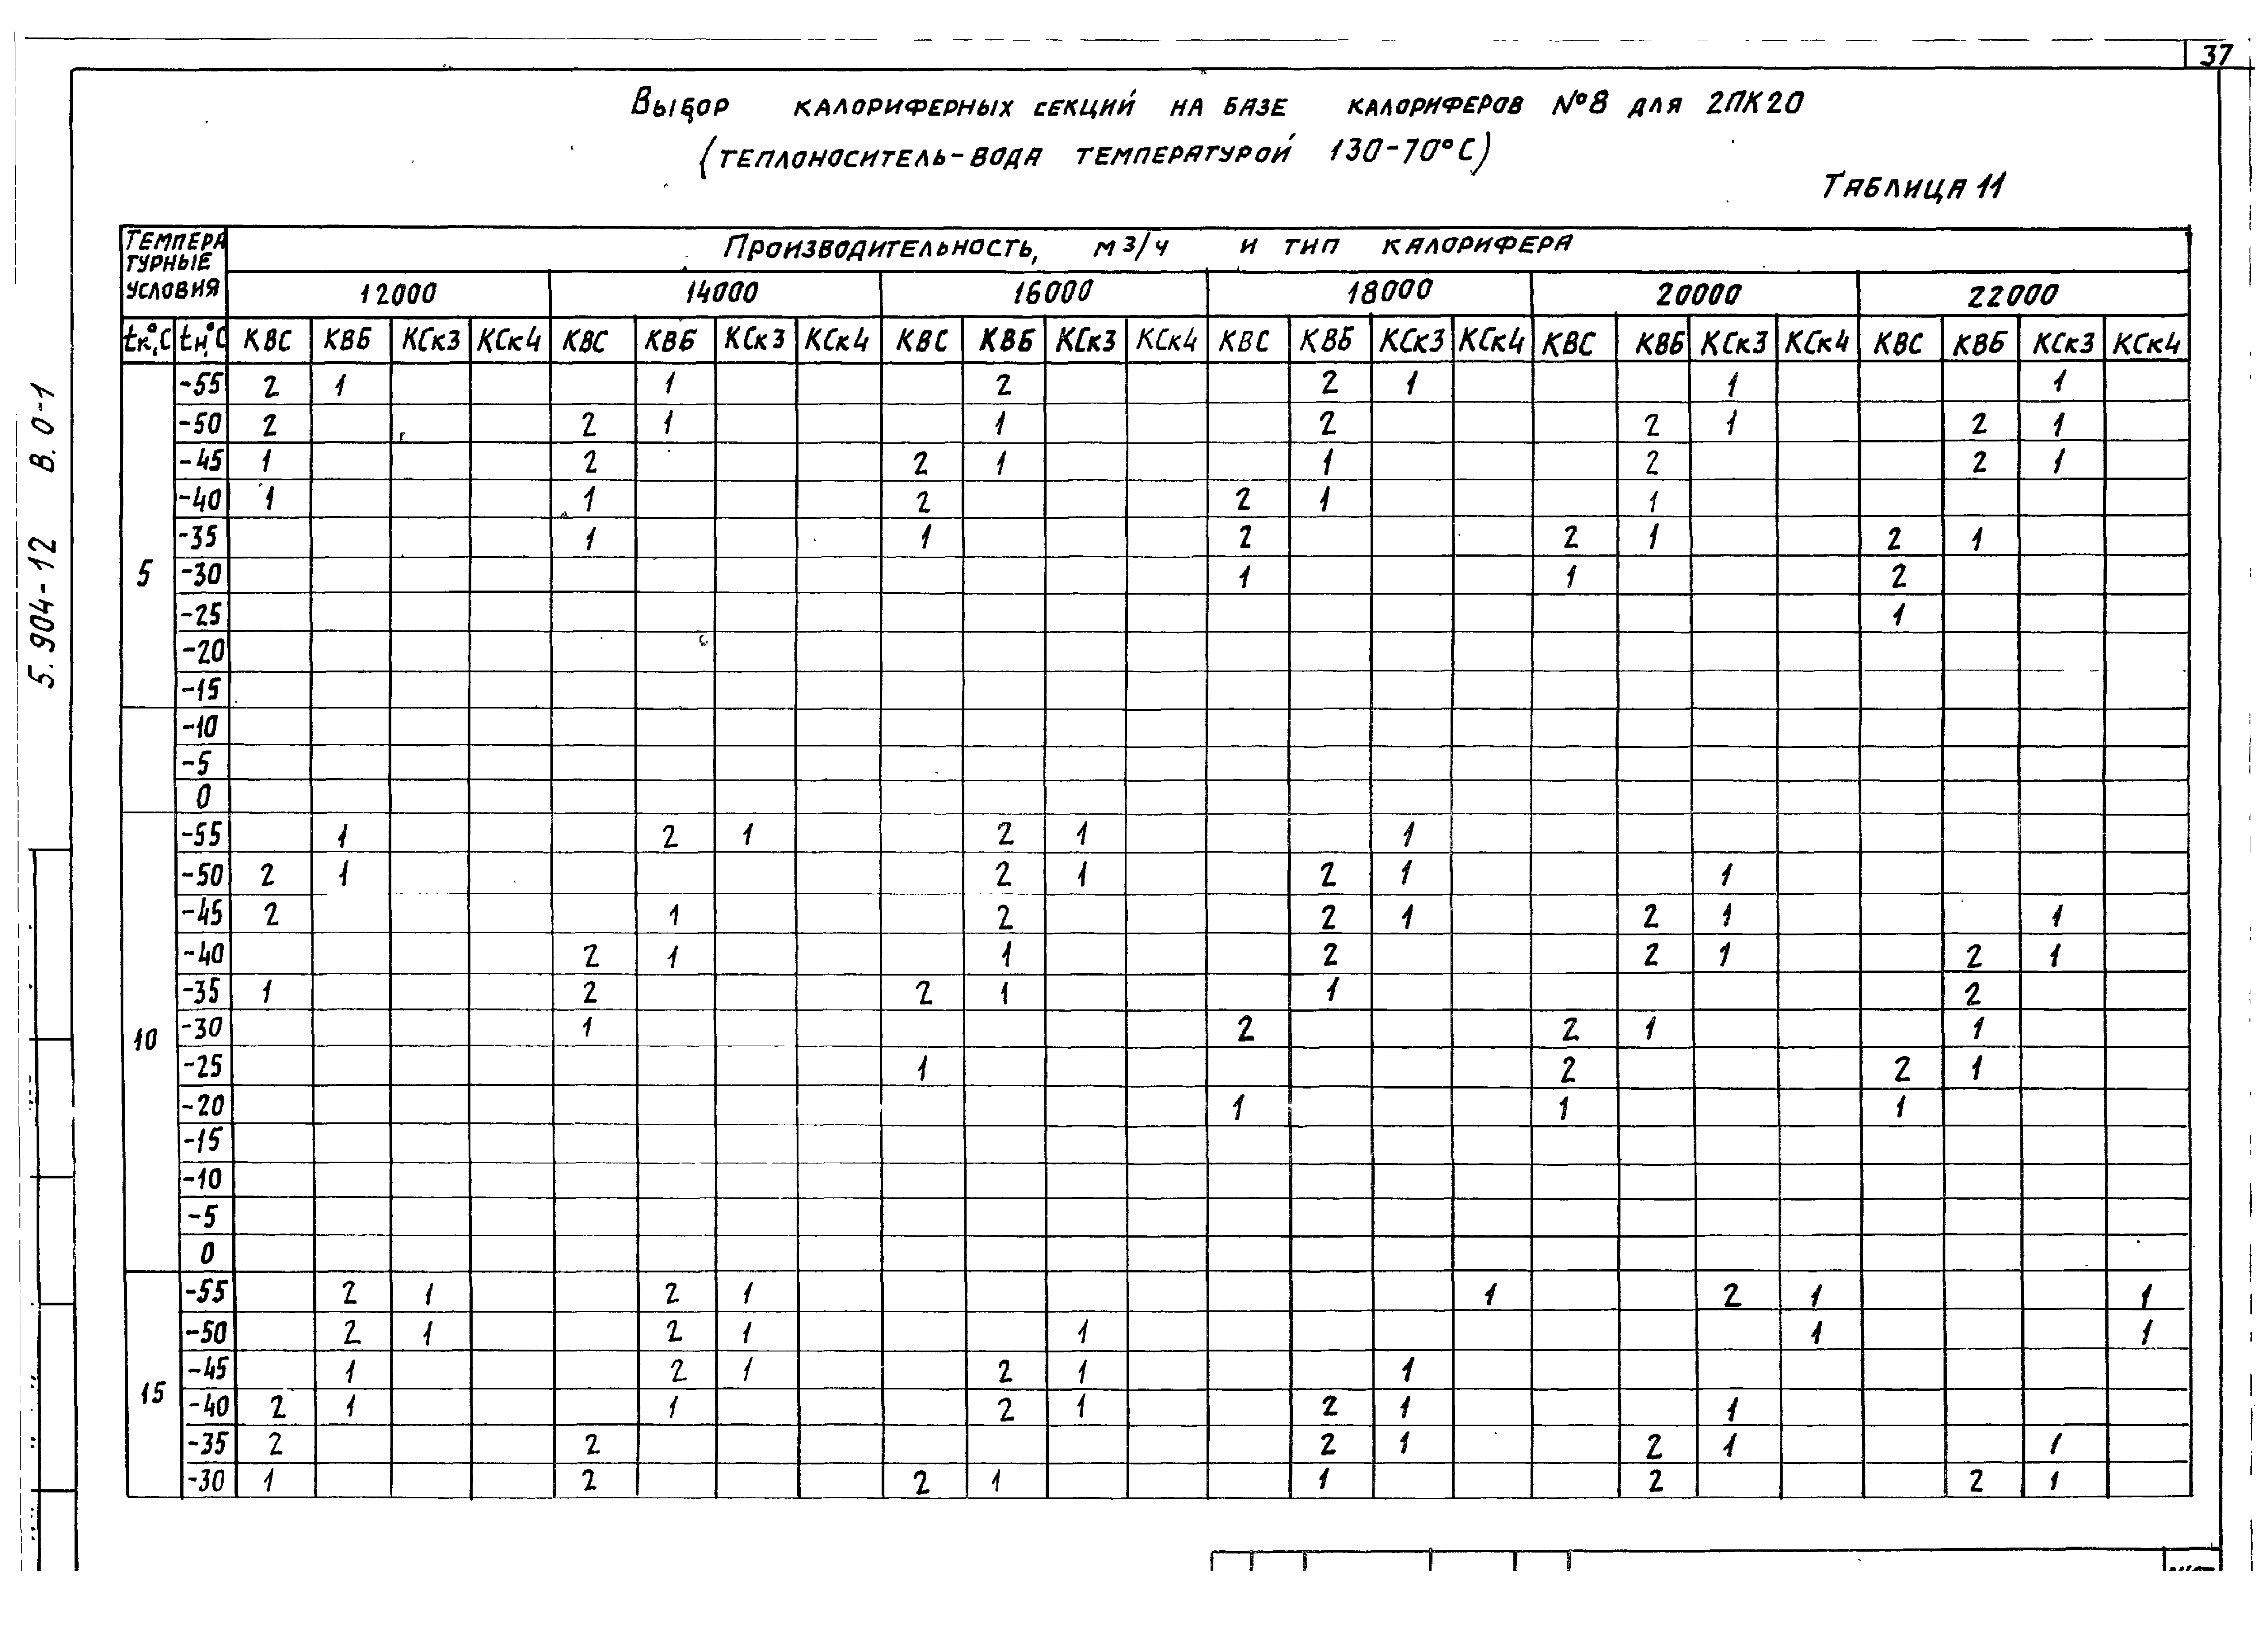 37
Выбор калориферных секций на базе калориферов №8 для 2ПК20
(теплоноситель-вода температурой 130-70°С)
Таблица 11
5.904-12 В.0-1
Темпера Производительность, м3/ч и тип калорифера
турные
условия 12000 14000 16000 18000 20000 22000
tк,°С tн,°С КВС КВБ КСк3 КСк4 КВС КВБ КСк3 КСк4 КВС КВБ КСк3 КСк4 КВС КВБ КСк3 КСк4 КВС КВБ КСк3 КСк4 КВС КВБ КСк3 КСк4
-55 2 1 1 2 2 1 1 1
-50 2 2 1 1 2 2 1 2 1
-45 1 2 2 1 1 2 2 1
-40 1 1 2 2 1 1
-35 1 1 2 2 1 2 1
5 -30 1 1 2
-25 1
-20
-15
-10
-5
0
-55 1 2 1 2 1 1
-50 2 1 2 1 2 1 1
-45 2 1 2 2 1 2 1 1
-40 2 1 1 2 2 1 2 1
-35 1 2 2 1 1 2
10 -30 1 2 2 1 1
-25 1 2 2 1
-20 1 1 1
-15
-10
-5
0
-55 2 1 2 1 1 2 1 1
-50 2 1 2 1 1 1 1
-45 1 2 1 2 1 1
15 -40 2 1 1 2 1 2 1 1
-35 2 2 2 1 2 1 1
-30 1 2 2 1 1 2 2 1